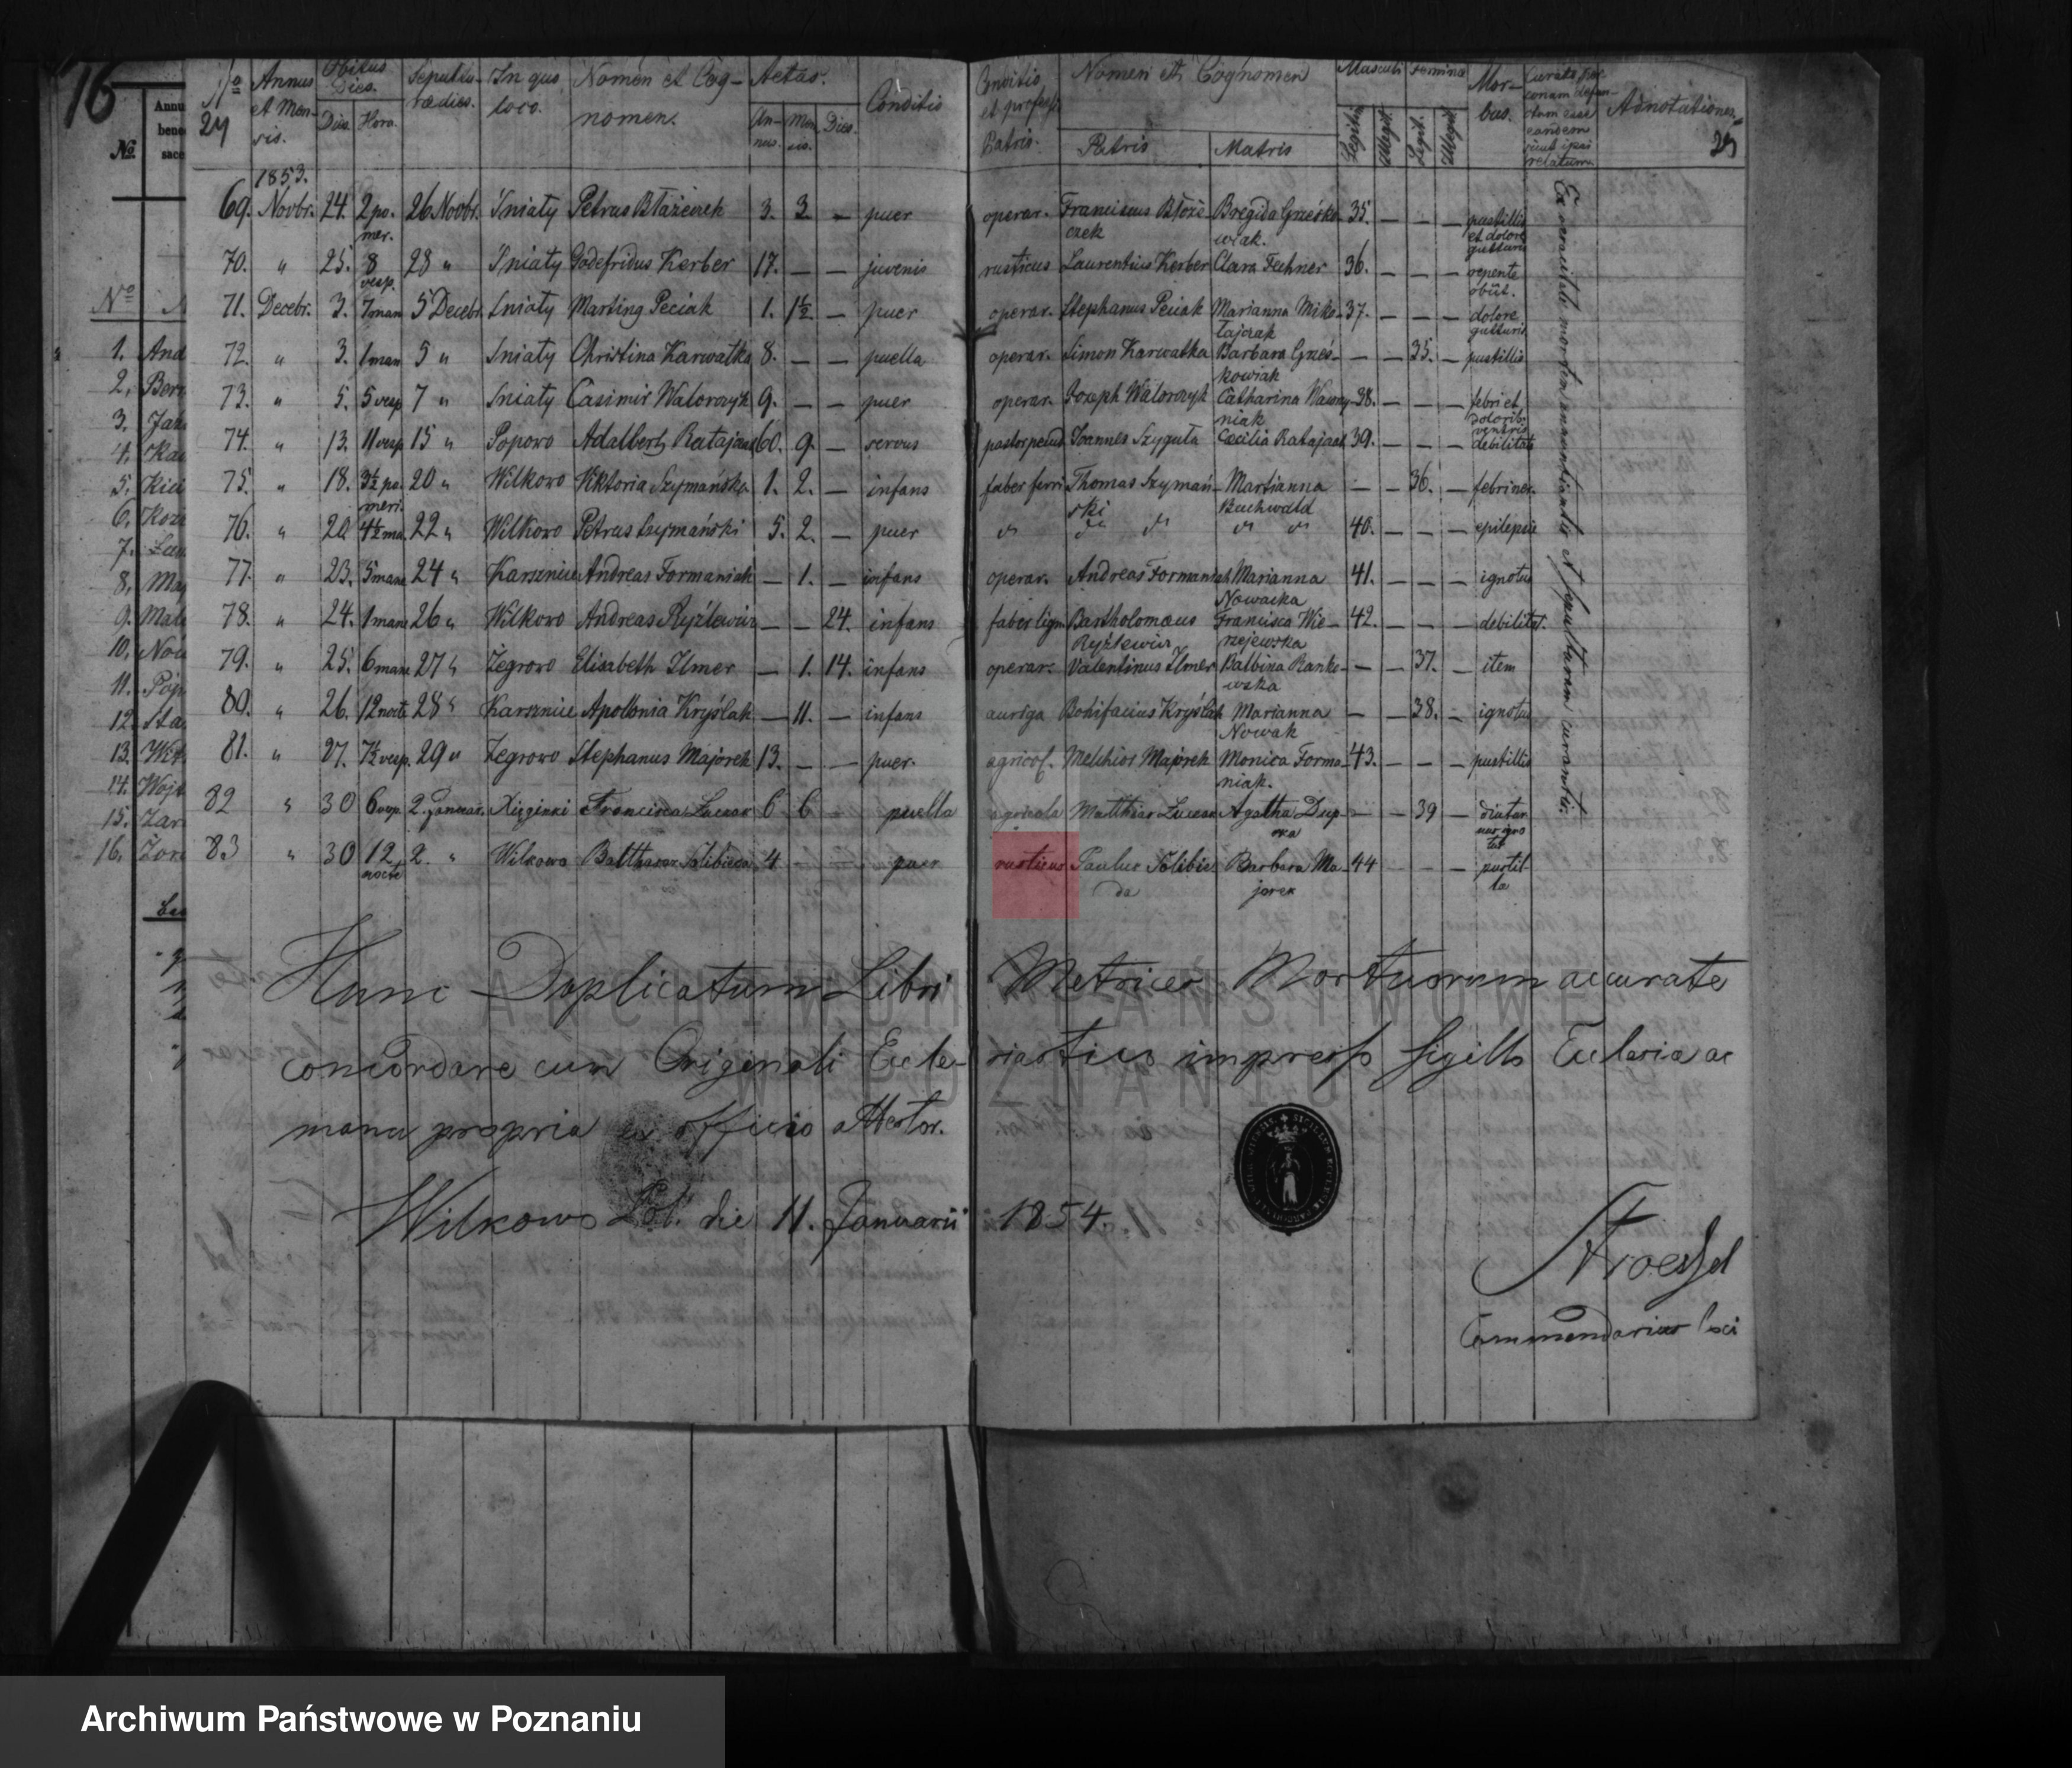 16
No
24
Annus et Mensis.
Obitus Dies.
Dies Hora.
Sepulturae dies.
In quo loco.
Nomen et Cognomen.
Aetas.
Annus. Mensis. Dies.
Conditio
Conditio et profess. Patris.
Nomen et Cognomen
Patris Matris
Masculi Feminae
Legitim. Illegit. Legit. Illegit.
Morbus.
Adnotationes.
25
1853.
69. Novbr. 24. 2 po. mer. 26 Novbr. Sniaty Petrus Błażeczek 3. 3. — puer operar. Franciscus Błażeczek Bregida Grześkowiak. 35. — — — pustillis et dolore gutturis
70. " 25. 8 vesp. 28 " Sniaty Godefridus Kerber 17. — — juvenis rusticus Laurentius Kerber Clara Fechner 36. — — — repente obiit.
71. Decebr. 3. 7 man 5 Decebr. Sniaty Peciak 1. 1½ — puer operar. Stephanus Peciak Marianna Mikołajczak 37. — — — dolore gutturis
72. " 3. 1 man 5 " Sniaty Christina Karwatka 8. — — puella operar. Simon Karwatka Barbara Grześkowiak — — 35. — pustillis
73. " 5. 5 vesp 7 " Sniaty Casimir Walorczyk 9. — — puer operar. Joseph Walorczyk Catharina 38. — — — febri et doloribs ventris
74. " 13. 11 vesp 15 " Popowo Adalbert Ratajzak 60. 9. — servus Joannes Szyguła Cæcilia Ratajzak 39. — — — debilitate
75. " 18. 3½ po. meri. 20 " Wilkowo Viktoria Szymańska 1. 2. — infans faber ferri Thomas Szymański Marianna Buchwald — — 36. — febri
76. " 20 4½ ma. 22 " Wilkowo Petrus Szymański 5. 2. — puer " " " " " 40. — — — epilepsia
77. " 23. 5 mane 24 " Karsznice Andreas Formaniak — 1. — infans operar. Andreas Formaniak Marianna Nowacka 41. — — — ignotus
78. " 24. 1 mane 26 " Wilkowo Andreas Ryźlewicz — — 24. infans faber lign Bartholomæus Ryźlewicz Francisca Wierzejewska 42. — — — debilitat.
79. " 25. 6 mane 27 " Zegrowo Elisabeth Ilmer — 1. 14. infans operar. Valentinus Ilmer Balbina Rankowska — — 37. — item
80. " 26. 12 nocte 28 " Karsznice Apollonia Kryślak — 11. — infans auriga Bonifacius Kryślak Marianna Nowak — — 38. — ignotus
81. " 27. 7½ vesp. 29 " Zegrowo Stephanus Majorek 13. — — puer. agricol. Melchior Majorek Monica Formaniak. 43. — — — pustillis
82 " 30 6 vesp. 2. Januar. Francisca Luczak 6 6 puella agricola Matthias Luczak Agatha — — 39 —
83 " 30 12 nocte 2. " Wilkowo Balthasar 4 — — puer rusticus Paulus Barbara Majorek 44 — — — pustilla
Ex veracitate mortem annuntiantis et sepulturam curantis.
No
1. And
2. Bern
3. Jak
4. Kac
5. Kici
6. Kozi
7.
8. Maj
9. Mał
10. Now
11.
12. Sta
13. Wit
14. Wojt
15. Zar
16. Zor
Hunc Duplicatum Libri Metrices Mortuorum accurate
concordare cum Originali Ecclesiastico impresso Sigillo Ecclesiae ac
manu propria ex officio attestor.
Wilkowo Pol. die 11. Januarii 1854.
Stroessel
Commendarius loci
ARCHIWUM PAŃSTWOWE
W POZNANIU
Archiwum Państwowe w Poznaniu